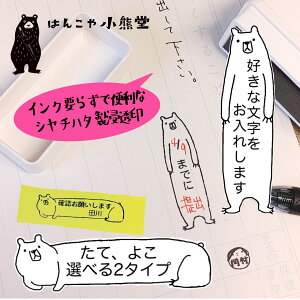 はんこや小熊堂
出して下さい。
インク要らずで便利な
シヤチハタ製浸透印
好きな文字を
お入れします
4/9
までに
提出
確認お願いします
田川
たて、よこ
選べる2タイプ
岡村